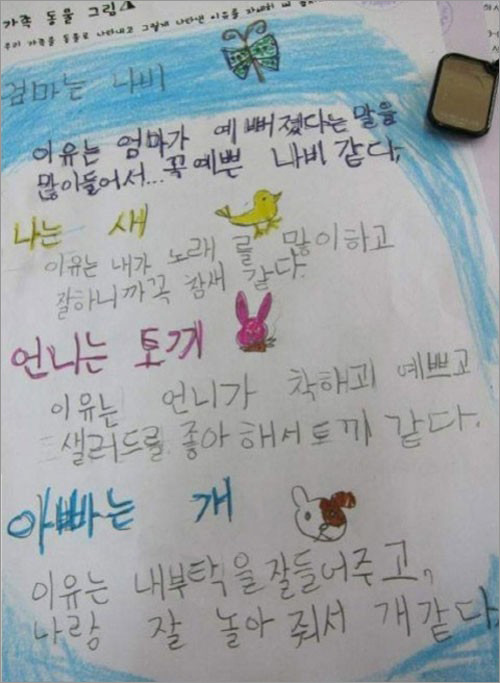 가족 동물 그림
우리 가족을 동물로 나타내고 그렇게 나타낸 이유를 자세히 써
엄마는 나비
이유는 엄마가 예뻐졌다는 말을
많이들어서...꼭예쁜 나비 같다,
나는 새
이유는 내가 노래를 많이하고
잘하니까꼭 참새 같다.
언니는 토끼
이유는 언니가 착해괴 예쁘고
샐러드를 좋아해서토끼 같다.
아빠는 개
이유는 내부탁을잘들어주고,
나랑 잘 놀아 줘서 개같다,